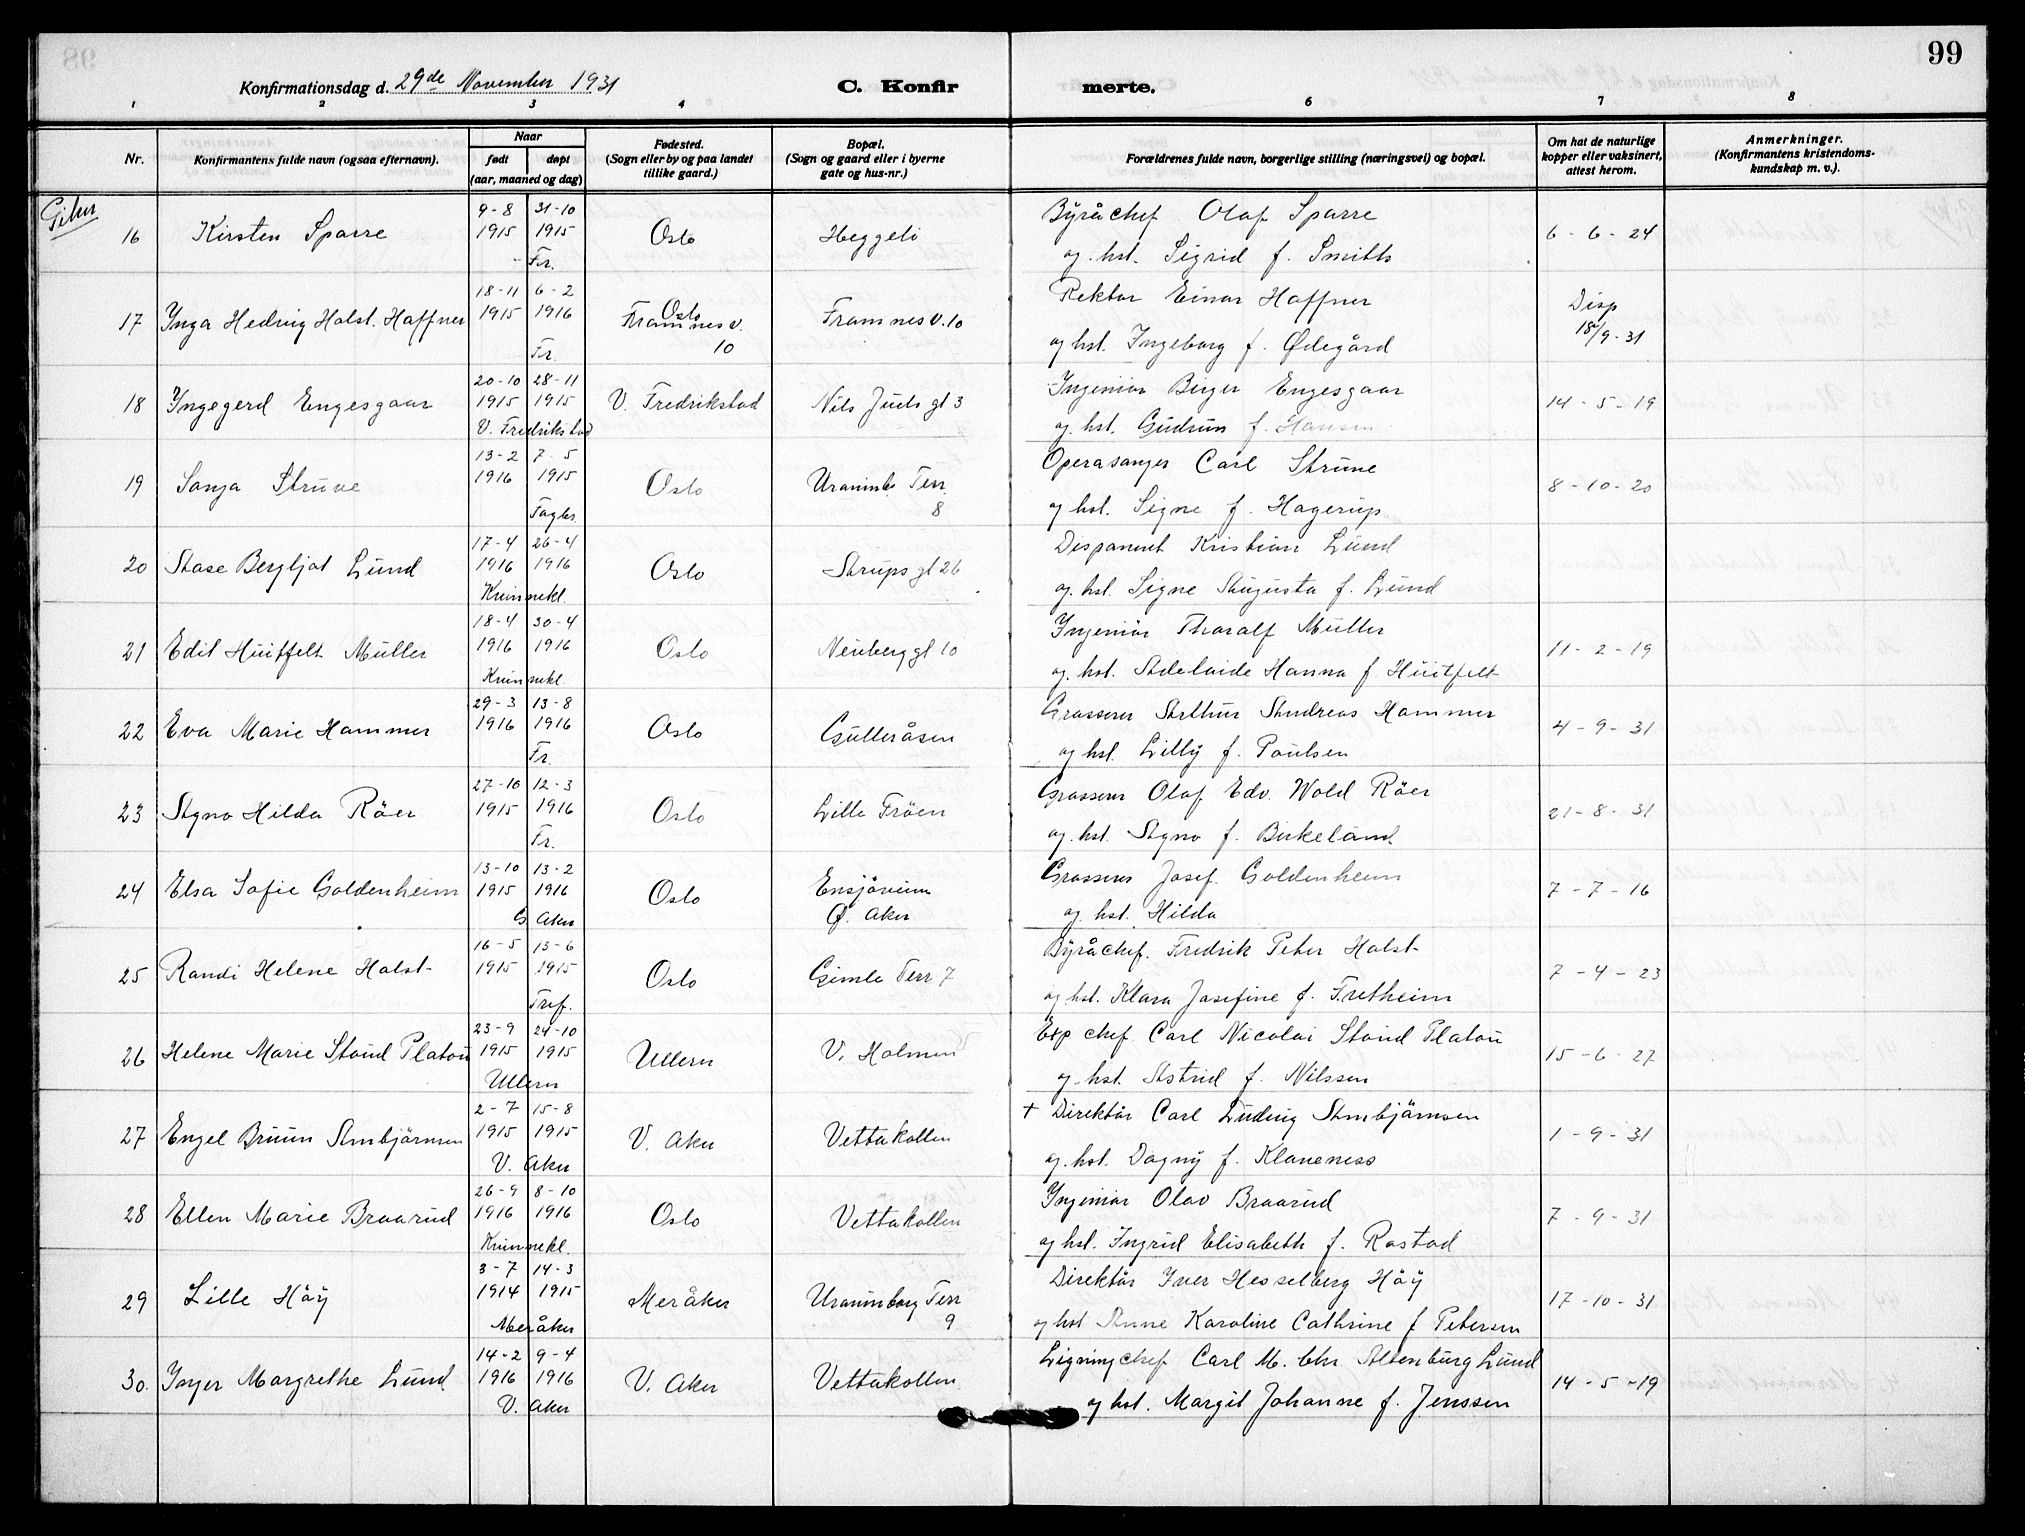 99
Konfirmationsdag d. 29de November 1931
C. Konfirmerte.
1 2 3 4 6 7 8
Nr.
Konfirmantens fulde navn (ogsaa efternavn).
Naar
født
døpt
(aar, maaned og dag)
Fødested.
(Sogn eller by og paa landet
tillike gaard.)
Bopæl.
(Sogn og gaard eller i byerne
gate og hus-nr.)
Forældrenes fulde navn, borgerlige stilling (næringsvei) og bopæl.
Om hat de naturlige
kopper eller vaksinert,
attest herom.
Anmerkninger.
(Konfirmantens kristendoms-
kundskap m. v.).
Piker
16 Kirsten Sparre 9-8 1915 31-10 1915 Fr. Oslo Heggeli
Byråchef Olaf Sparre
og hst. Sigrid f. Smith
6-6-24
17 Inga Hedvig Holst. Haffner 18-11 1915 6-2 1916 Fr. Oslo Framnesv. 10 Framnesv. 10
Rektor Einar Haffner
og hst. Ingeborg f. Ødegård
Disp 18/9-31
18 Ingegerd Engesgaar 20-10 1915 28-11 1915 V. Fredrikstad V. Fredrikstad Nils Juels gt 3
Ingeniør Birger Engesgaar
og hst. Gudrun f. Hansen
14-5-19
19 Sonja Struve 13-2 1916 7-5 1915 Fagb. Oslo Uranienb Terr. 8
Operasanger Carl Strune
og hst. Signe f. Hagerup
8-10-20
20 Aase Bergljot Lund 17-4 1916 26-4 1916 Kvinnekl. Oslo Arups gt 26
Disponent Kristian Lund
og hst. Signe Augusta f. Lund
21 Edit Huitfelt Müller 18-4 1916 30-4 1916 Kvinnekl. Oslo Neuberggt 10
Ingeniör Tharalf Müller
og hst. Adelaide Hanna f Huitfelt
11-2-19
22 Eva Marie Hammer 29-3 1916 13-8 1916 Fr. Oslo Gulleråsen
Grosserer Arthur Andreas Hammer
og hst. Lilly f. Poulsen
4-9-31
23 Agno Hilda Röer 27-10 1915 12-3 1916 Fr. Oslo Lille Fröen
Grosserer Olaf Edv. Wold Röer
og hst. Agno f. Birkeland
21-8-31
24 Elsa Sofie Goldenheim 13-10 1915 13-2 1916 G Aker Oslo Ensjøveien Ø. Aker
Grosserer Josef Goldenheim
og hst. Hilda
7-7-16
25 Randi Helene Holst 16-5 1915 13-6 1915 Tref. Oslo Gimle Terr 7
Byråchef. Fredrik Peter Holst
og hst. Klara Josefine f. Fretheim
7-4-23
26 Helene Marie Stoud Platou 23-9 1915 24-10 1915 Ullern Ullern V. Holmen
Exp chef Carl Nicolai Stoud Platou
og hst. Astrid f. Nilssen
15-6-27
27 Engel Bruun Arnbjörnsen 2-7 1915 15-8 1915 V. Aker V. Aker Vettakollen
† Direktör Carl Ludvig Arnbjörnsen
og hst. Dagny f. Klaveness
1-9-31
28 Ellen Marie Braarud 26-9 1916 8-10 1916 Kvinnekl. Oslo Vettakollen
Ingeniör Olav Braarud
og hst. Ingrid Elisabeth f. Rostad
7-9-31
29 Lille Höy 3-7 1914 14-3 1915 Meråker Meråker Uranienborg Terr 9
Direktör Iver Hesselberg Höy
og hst Anne Karoline Cathrine f Petersen
17-10-31
30. Inger Margrethe Lund 14-2 1916 9-4 1916 V. Aker V. Aker Vettakollen
Ligningchef Carl M. Chr Altenburg Lund
og hst. Margit Johanne f. Jenssen
14-5-19